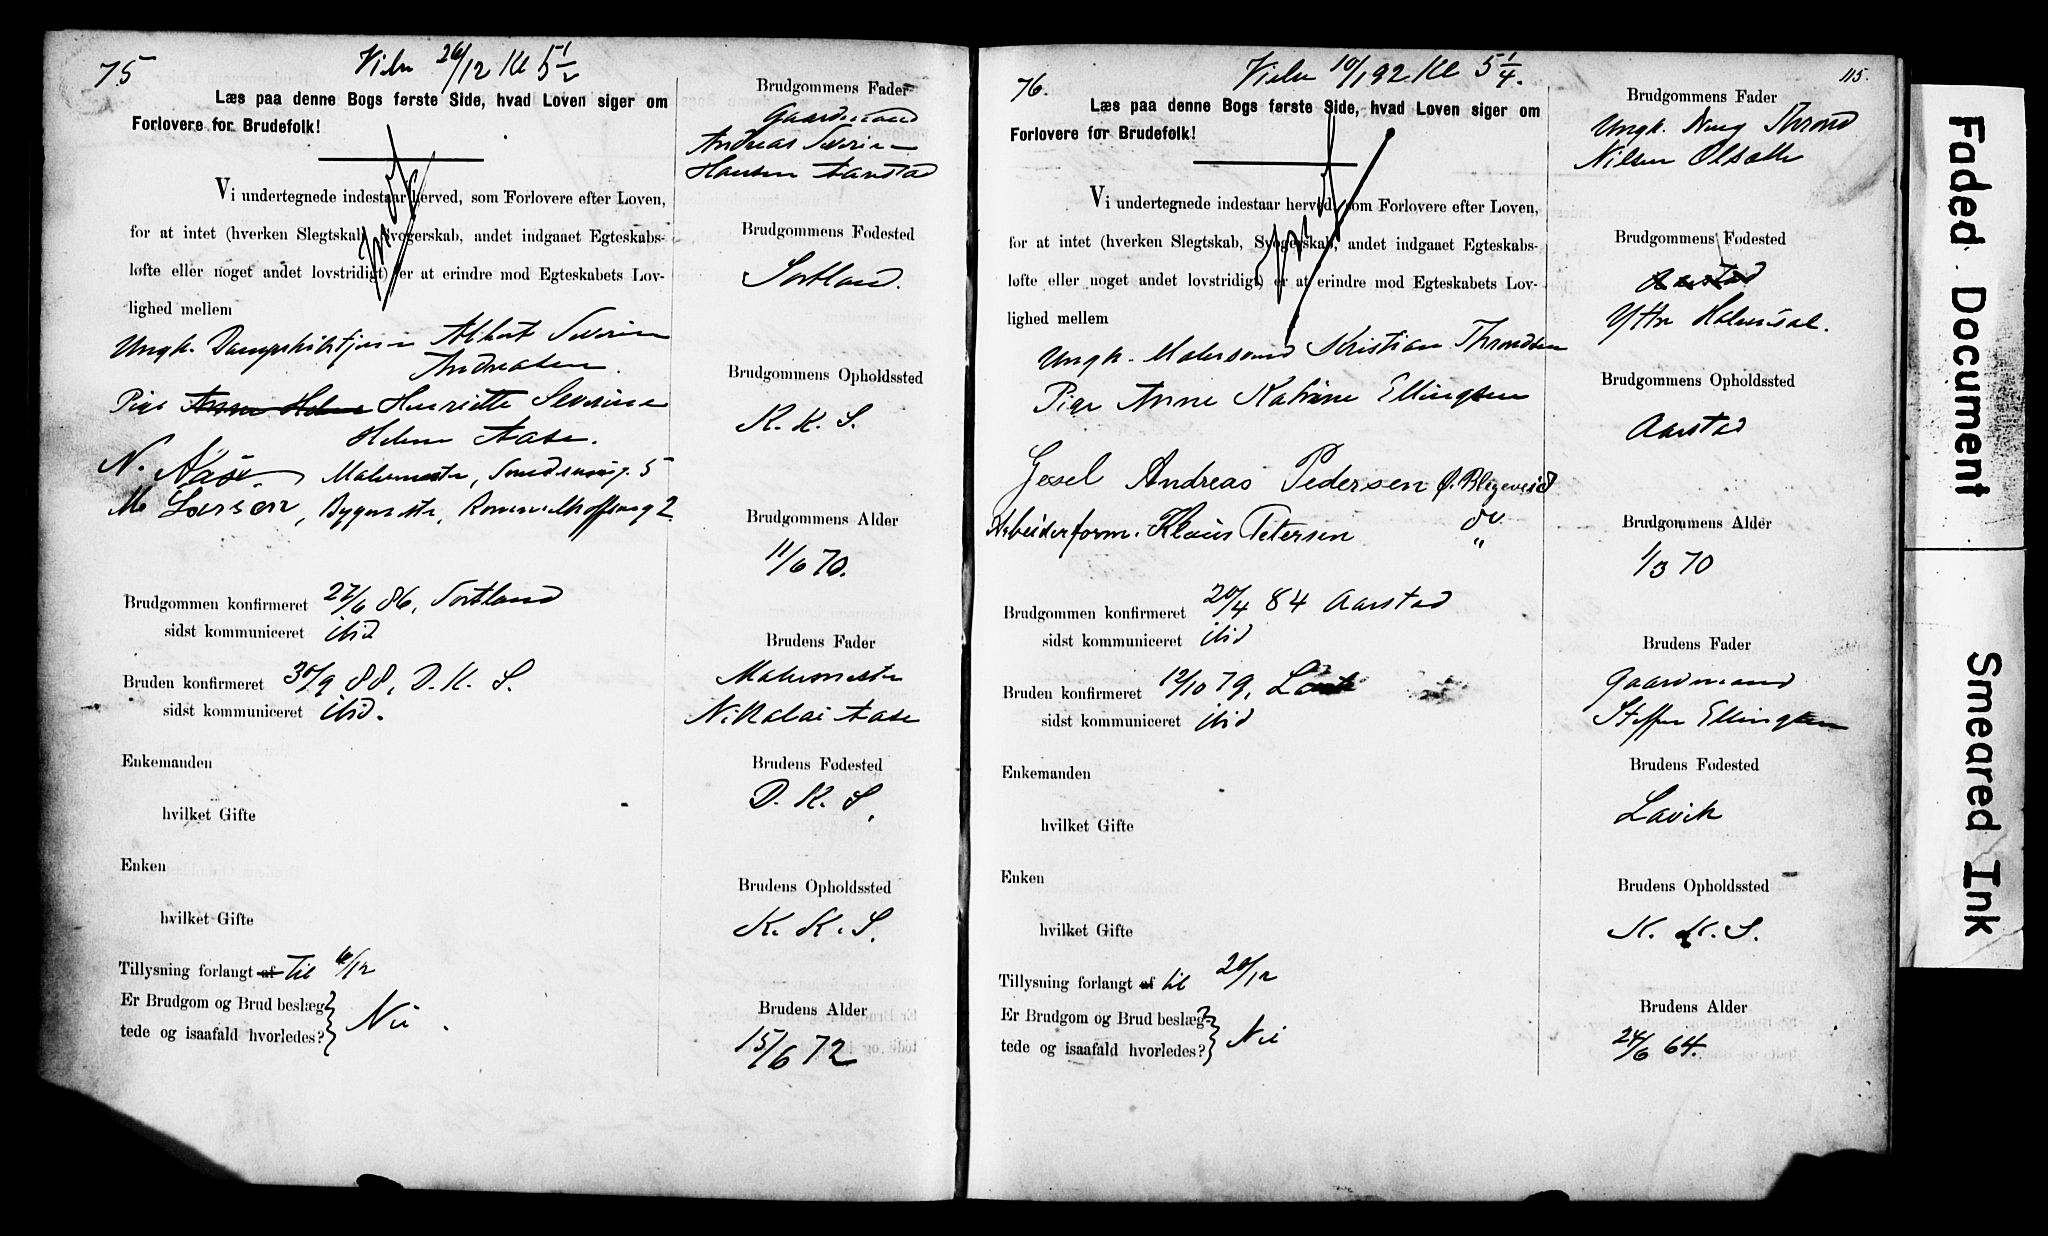 75
Vielse 26/12 Kl 5 1/2
Læs paa denne Bogs første Side, hvad Loven siger om
Forlovere for Brudefolk!
Vi undertegnede indestaar herved, som Forlovere efter Loven,
for at intet (hverken Slegtskab, Svogerskab, andet indgaaet Egteskabs-
løfte eller noget andet lovstridigt) er at erindre mod Egteskabets Lov-
lighed mellem
Ungk. Albert Severin
Andreasen.
Pige Anne Helene Henriette Severine
Helene Aase.
N. Aase. Malermester, 5
M Larsen, Bygmester, 2
Brudgommen konfirmeret 27/6 86, Sortland
sidst kommuniceret ibid
Bruden konfirmeret 30/9 88, D. K. S.
sidst kommuniceret ibid.
Enkemanden
hvilket Gifte
Enken
hvilket Gifte
Tillysning forlangt af til /12
Er Brudgom og Brud beslæg-
tede og isaafald hvorledes? Nei.
Brudgommens Fader
Gaardmand
Andreas Severin
Hansen Aanstad
Brudgommens Fødested
Sortland.
Brudgommens Opholdssted
K. K. S.
Brudgommens Alder
11/6 70.
Brudens Fader
Malermester
Nikolai Aase
Brudens Fødested
D. K. S.
Brudens Opholdssted
K. K. S.
Brudens Alder
15/6 72
76.
Vielse 10/1 92 Kl 5 1/4.
115.
Læs paa denne Bogs første Side, hvad Loven siger om
Forlovere for Brudefolk!
Vi undertegnede indestaar herved, som Forlovere efter Loven,
for at intet (hverken Slegtskab, Svogerskab, andet indgaaet Egteskabs-
løfte eller noget andet lovstridigt) er at erindre mod Egteskabets Lov-
lighed mellem
Ungk. Malersvend Kristian Throndsen
Pige Anne Katrine Ellingsen
Gesel Andreas Pedersen Ø. Blegeveid
Arbeiderform. Klaus Petersen do "
Brudgommen konfirmeret 20/4 84 Aarstad
sidst kommuniceret ibid
Bruden konfirmeret 12/10 79,
sidst kommuniceret ibid
Enkemanden
hvilket Gifte
Enken
hvilket Gifte
Tillysning forlangt af til 20/12
Er Brudgom og Brud beslæg-
tede og isaafald hvorledes? Nei
Brudgommens Fader
Ungk. Thrond
Nilsen
Brudgommens Fødested
Aarstad
Ytre
Brudgommens Opholdssted
Aarstad
Brudgommens Alder
1/3 70
Brudens Fader
Gaardmand
Steffen Ellingsen
Brudens Fødested
Lavik
Brudens Opholdssted
K. K. S.
Brudens Alder
24/6 64.
Faded Document
Smeared Ink